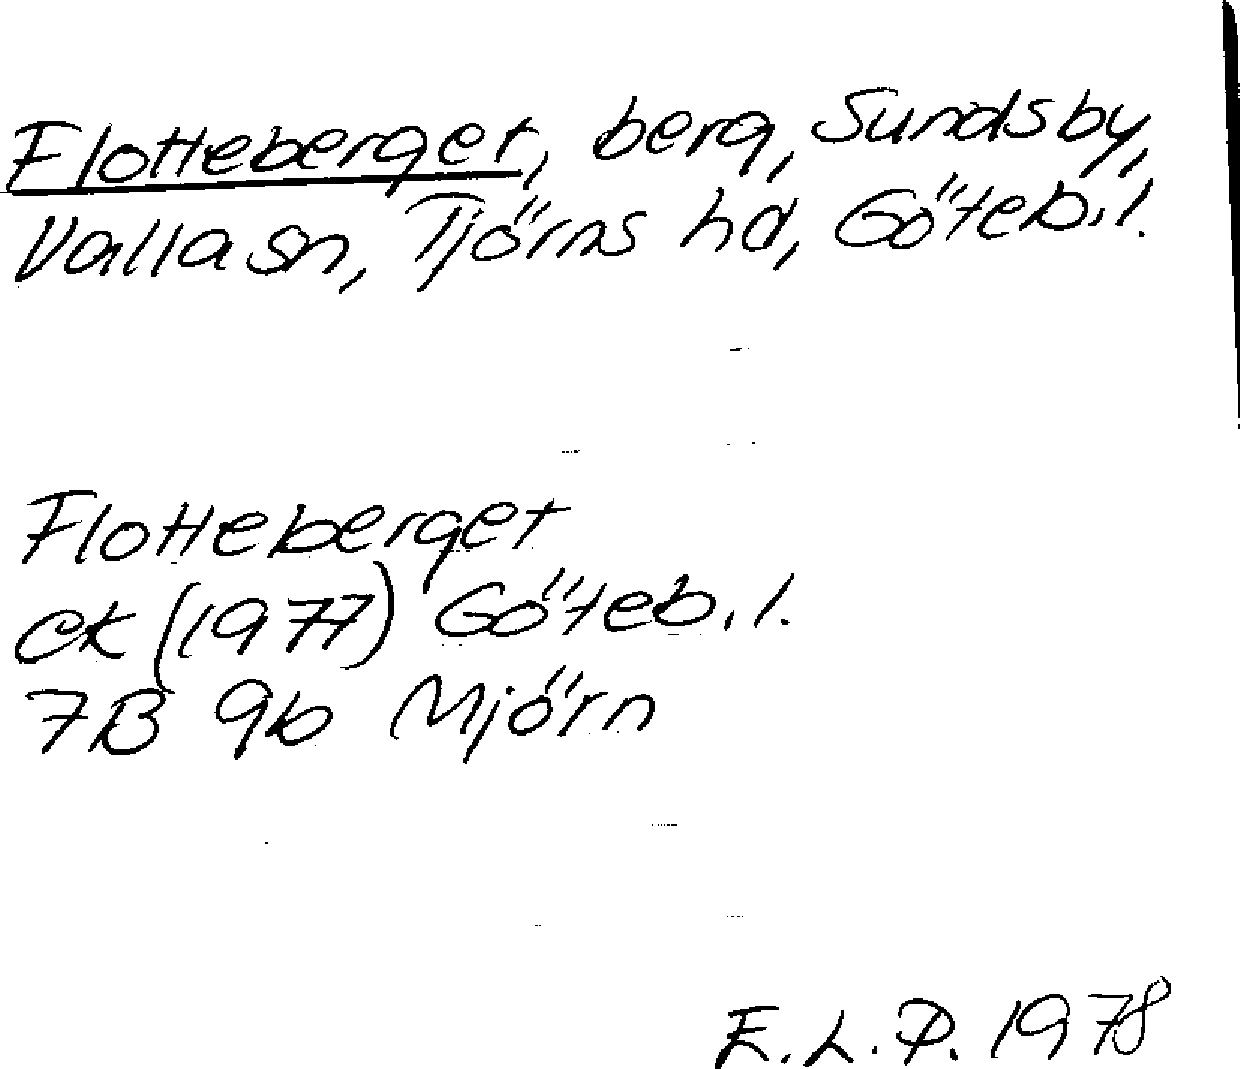 Flotteberget, berg, Sundsby,
Valla sn, Tjörns hd, Göteb.l.
Flotteberget
ek (1977) Göteb.l.
7B 9b Mjörn
E.L.P. 1978